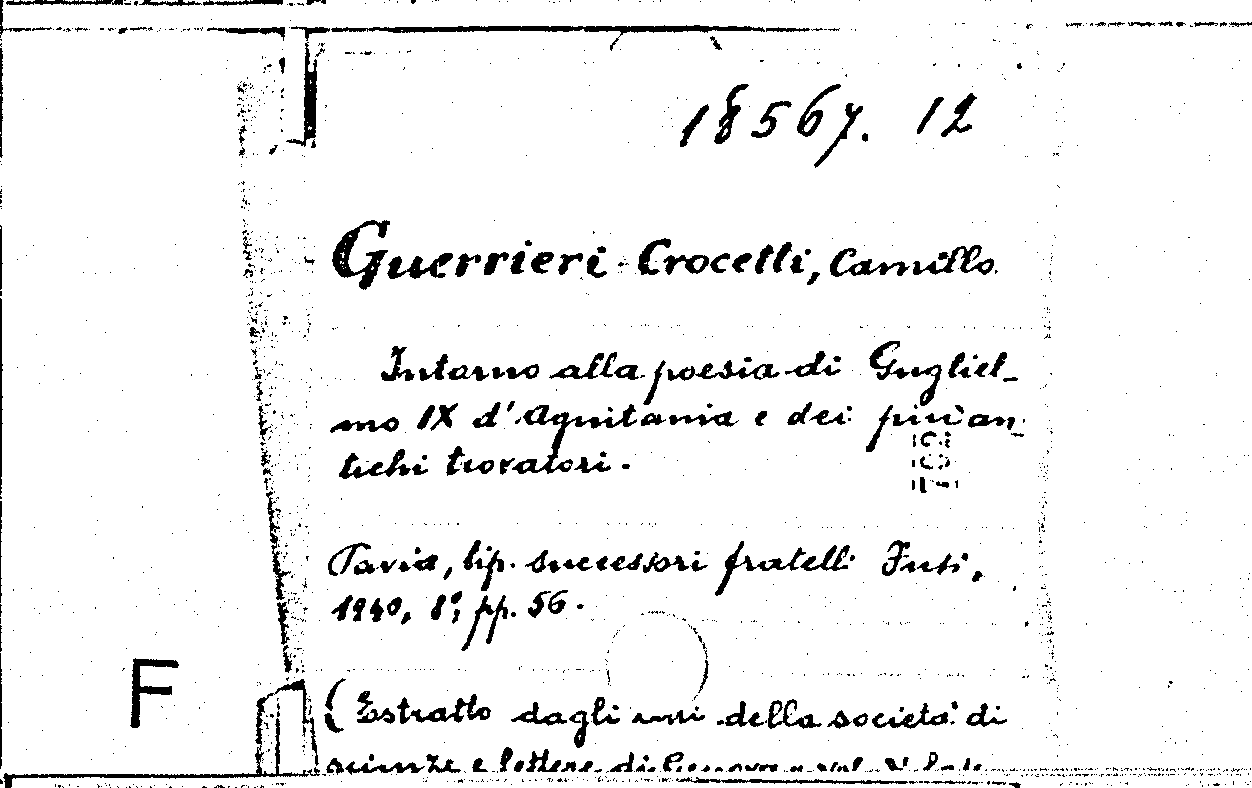 18567. 12
Guerrieri-Crocetti, Camillo
Intorno alla poesia di Gugliel-
mo IX d'Aquitania e dei più an-
tichi trovatori.
Pavia, tip. successori fratelli Fusi,
1940, 8°, pp. 56.
F
(Estratto dagli atti della società di
scienze e lettere di Genova, vol.